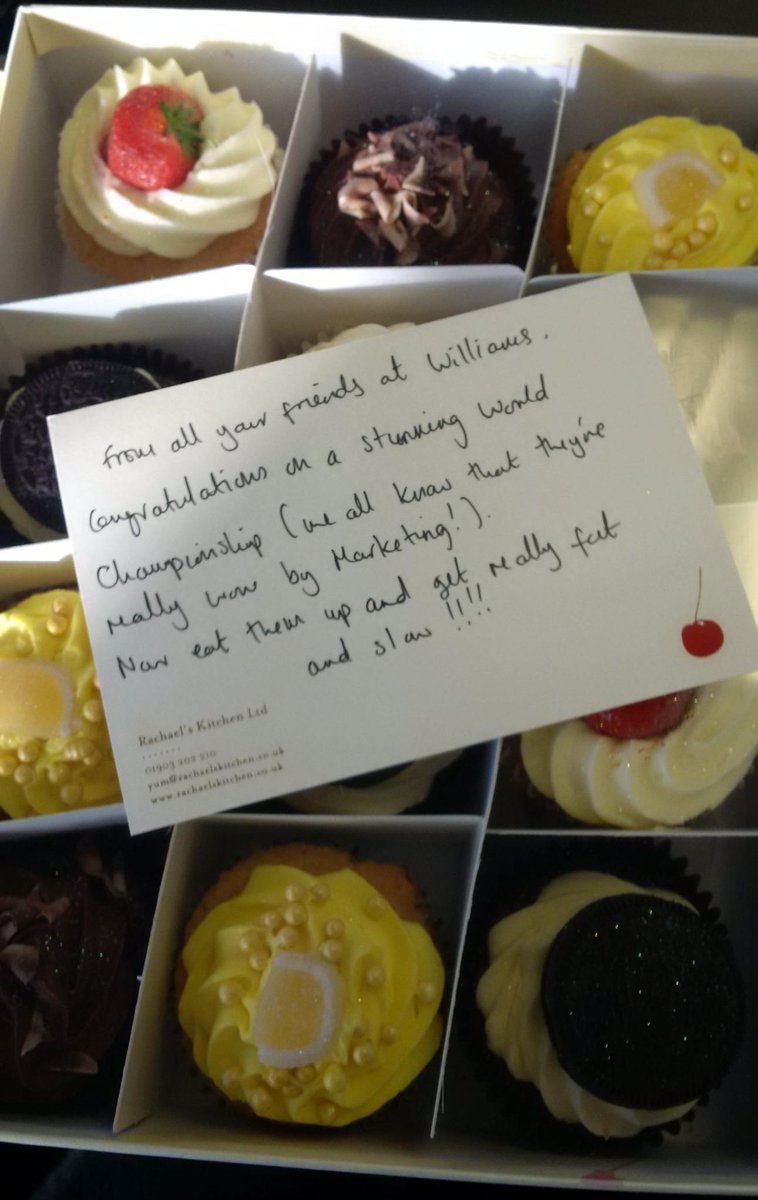 from all your friends at Williams.
Congratulations on a stunning World
Championship (we all know that they're
really won by Marketing!).
Now eat them up and get really fat
and slow !!!!
Rachael's Kitchen Ltd
01903 202 210
yum@rachaelskitchen.co.uk
www.rachaelskitchen.co.uk